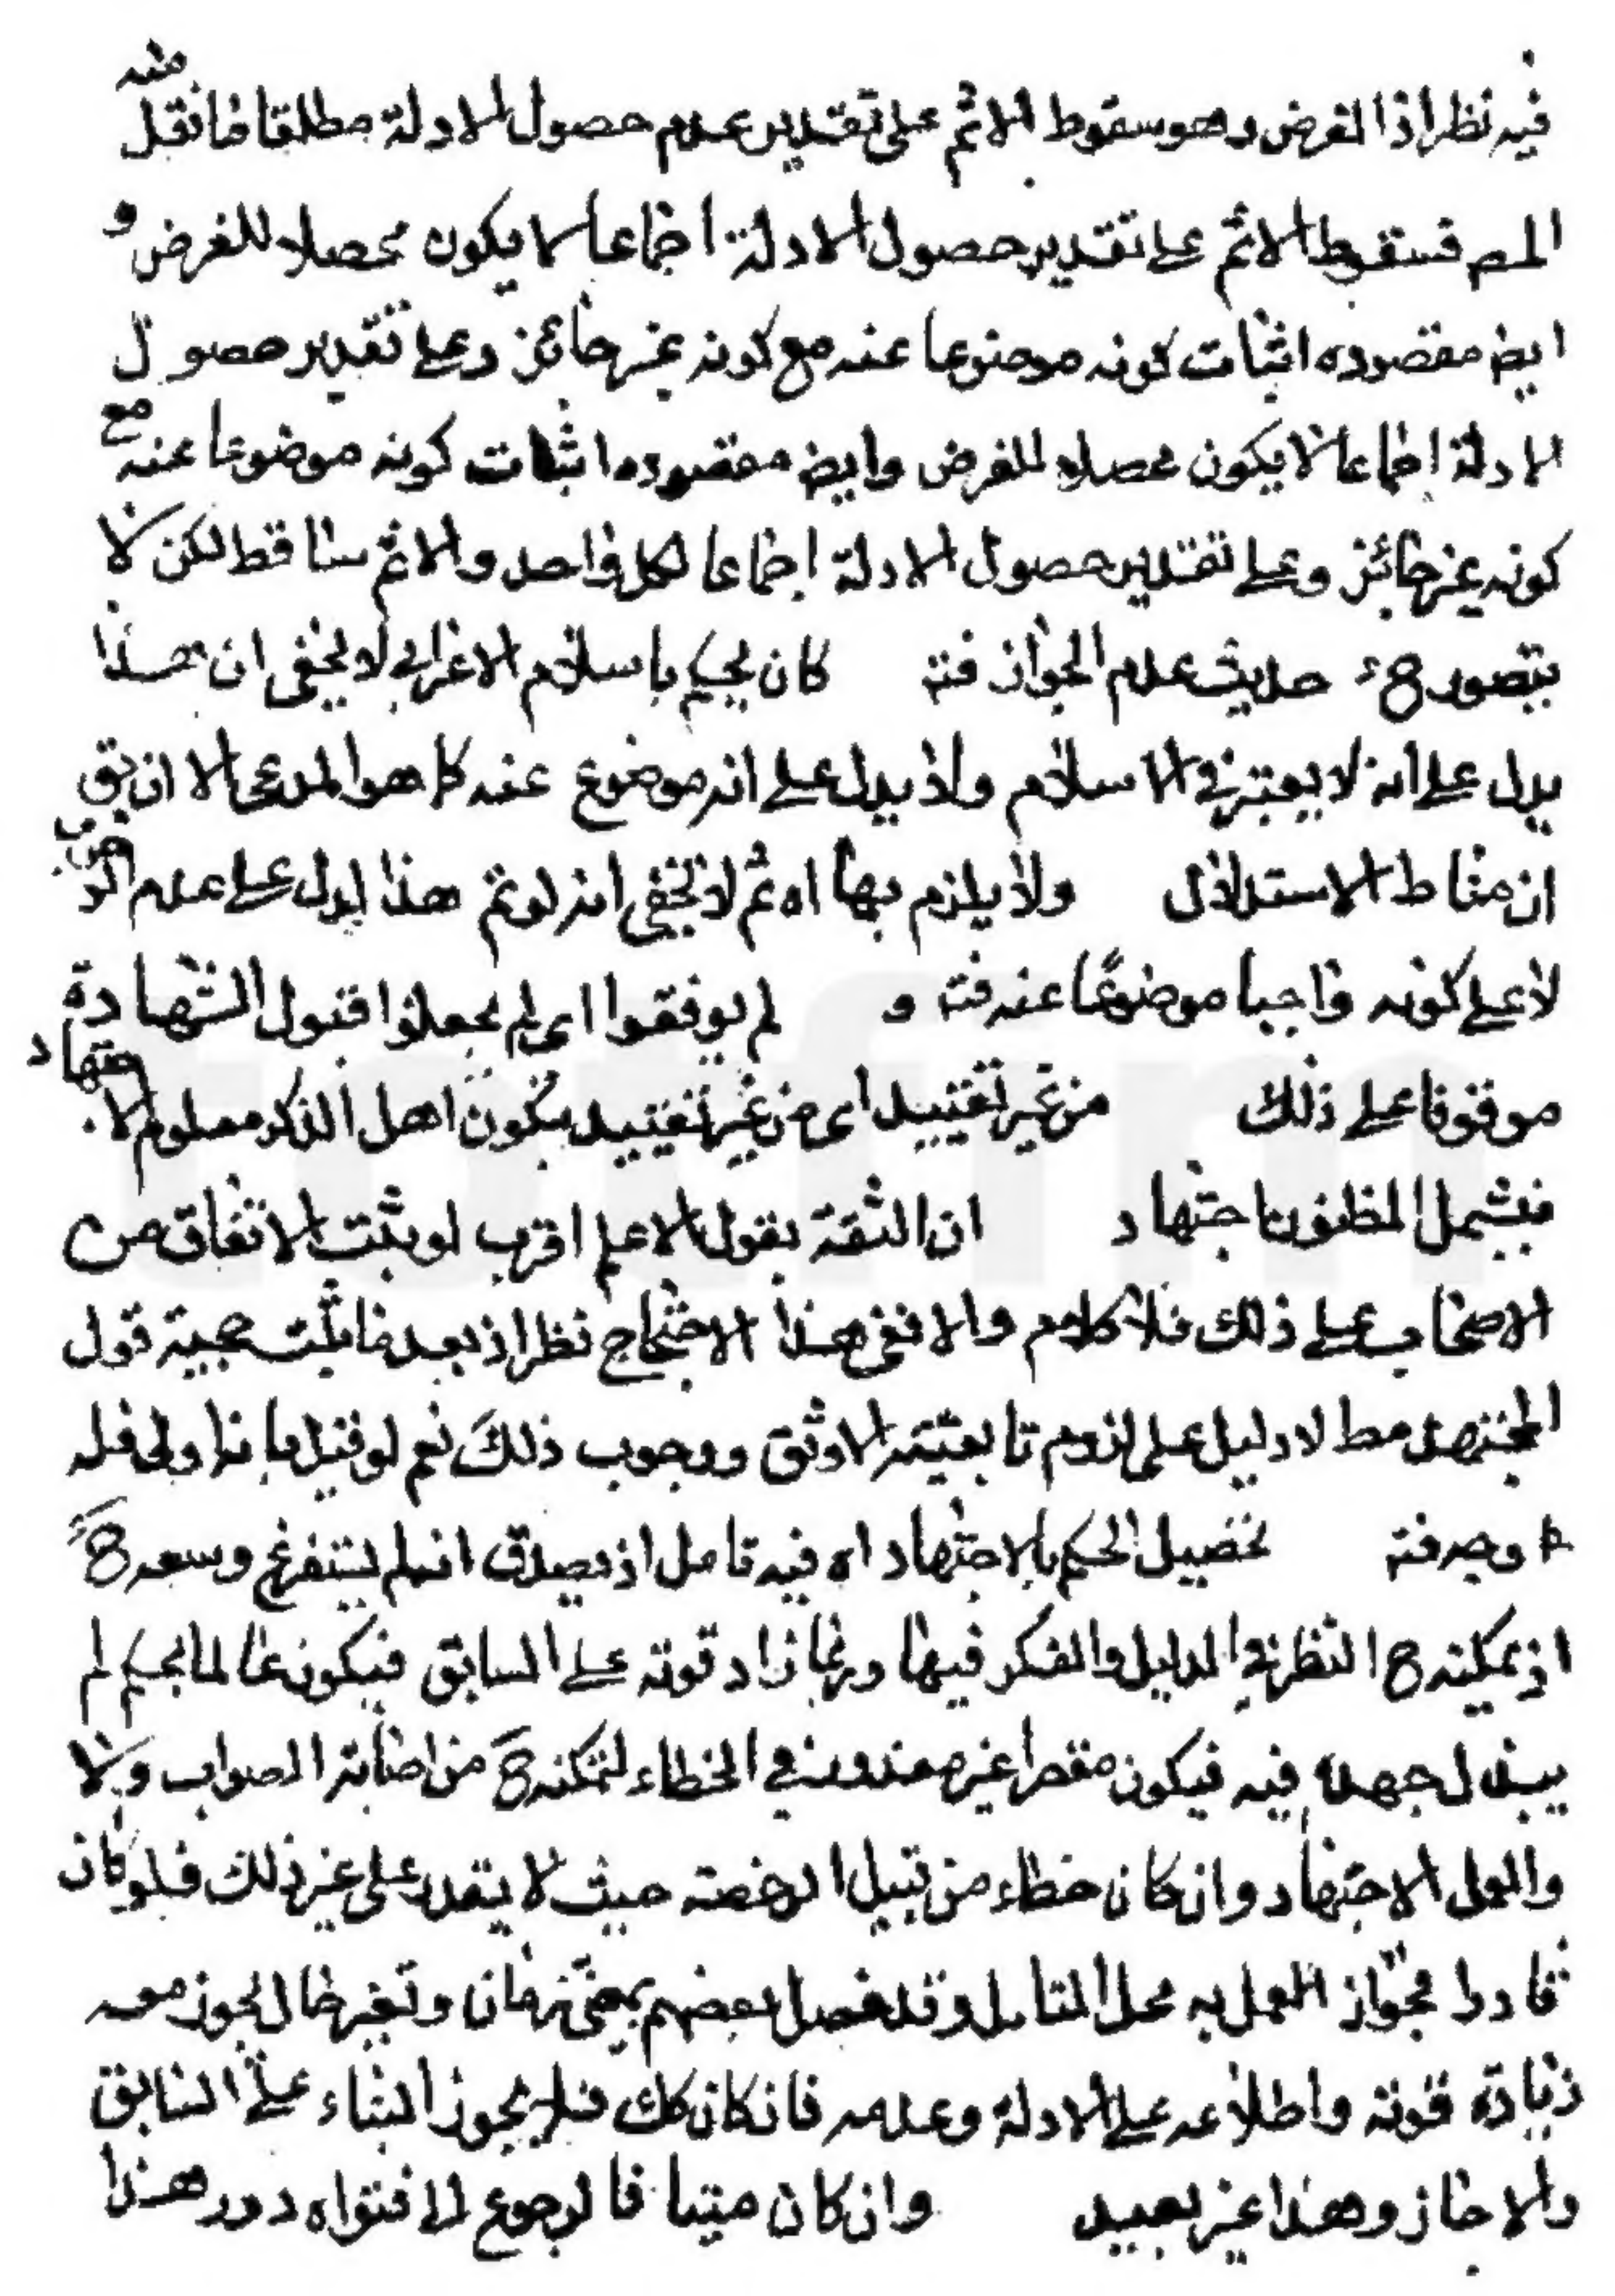 فيه نظر اذ الغرض وهو سقوط الاثم على تقدير عدم حصول الادلة مطلقا فانقل عنه
المص فسقوط الاثم على تقدير حصول الادلة اجماعا لا يكون محصلا للغرض و
ايض مقصوده اثبات كونه موضوعا عنه مع كونه غير جائز وعلى تقدير حصول
الادلة اجماعا لا يكون محصلا للغرض وايض مقصوده اثبات كونه موضوعا عنه مع
كونه غير جائز وعلى تقدير حصول الادلة اجماعا لكل واحد والاثم ساقط لكن لا
يتصور ح حديث عدم الجواز فتـ كان يحكم باسلام الاعرابي لا يخفى ان هذا
يدل على انه لا يعتبر في الاسلام ولا يدل على انه موضوع عنه كما هو المدعى الا ان يق
ان مناط الاستدلال ولا يلزم بها اه ثم لا يخفى انه لو تم هذا لدل على عدم الوجوب
لا على كونه واجبا موضوعا عنه فتـ و لم يوفقوا اى لم يجعلوا قبول الشهادة
موقوفا على ذلك من غير تقييد اى من غير تقييد بكون اهل الذكر معلوم الاجتهاد
فيشمل المظنون اجتهاد ان الثقة بقول الاعلم اقرب لو ثبت الاتفاق من
الاصحاب على ذلك فلا كلام والا ففى هذا الاحتجاج نظر اذ بعد ما ثبت حجية قول
المجتهد مط لا دليل على لزوم تابعيته الاوثق ووجوب ذلك نعم لو قيل بانه اولى فله
وجه فتـ تحصيل الحكم بالاجتهاد اه فيه تامل اذ يصدق انه لم يستفرغ وسعه ح
اذ يمكنه ح النظر في الدليل والفكر فيها وربما زاد قوته على السابق فيكون عالما بحكم لم
يبذل جهده فيه فيكون مقصرا غير معذور في الخطاء لتمكنه ح من اصابة الصواب ولا
والعمل الاجتهاد وان كان خطاء من قبيل الرخصة حيث لا يقدر على غير ذلك فلو كان
قادرا فجواز العمل به محل التامل وقد فصل بعضهم بمضى زمان وتغير حال يجوز معه
زيادة قوته واطلاعه على الادلة وعدمه فان كان كك فلا يجوز البناء على السابق
والا جاز وهذا غير بعيد وان كان ميتا فالرجوع الى فتواه دور هذا